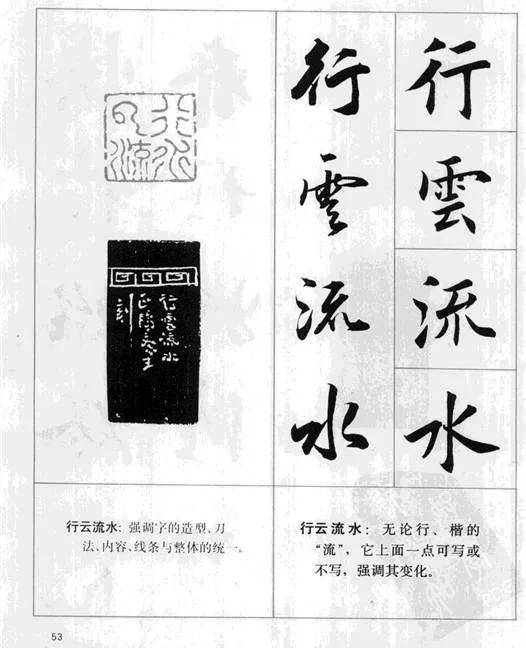 行雲流水
行雲流水
行云流水
行雲流水
行云流水：强调字的造型、刀
法、内容、线条与整体的统一。
行云流水：无论行、楷的
“流”，它上面一点可写或
不写，强调其变化。
53